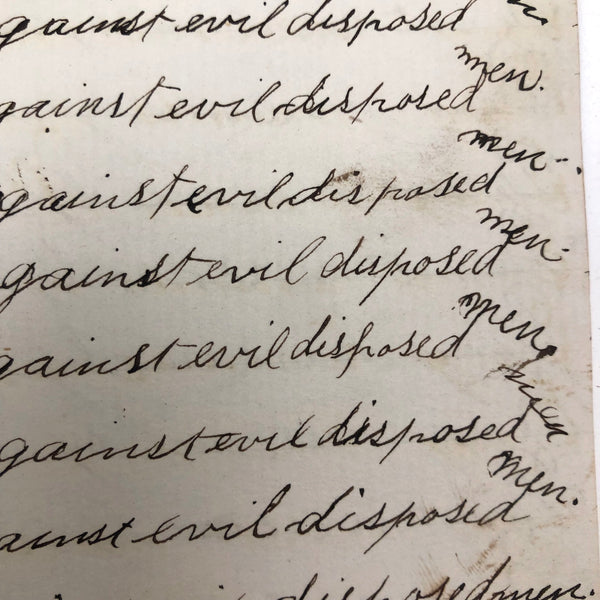 gainst evil disposed
men.
gainst evil disposed
men.
gainst evil disposed
men.
gainst evil disposed
men.
gainst evil disposed
men
gainst evil disposed
men.
ainst evil disposed
disposed men.